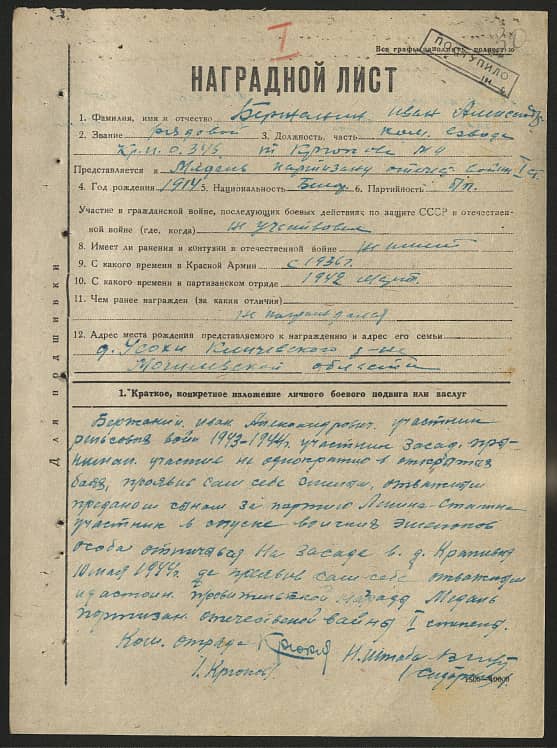 I
Все графы заполнять полностью
ПОСТУПИЛО
НАГРАДНОЙ ЛИСТ
1. Фамилия, имя и отчество Бержанин иван Александр
2. Звание рядовой 3. Должность, часть ком. взвода
п/о 345 Крюкова
Представляется к Медаль партизану отечес войны I ст.
4. Год рождения 1914 5. Национальность Бел. 6. Партийность б/п.
Участие в гражданской войне, последующих боевых действиях по защите СССР и отечествен-
ной войне (где, когда) не участвовал
8. Имеет ли ранения и контузии в отечественной войне не имеет
9. С какого времени в Красной Армии с 1936 г.
10. С какого времени в партизанском отряде 1942 март.
11. Чем ранее награжден (за какие отличия)
не награждался
12. Адрес места рождения представляемого к награждению и адрес его семьи
д. Усохи Кличевского р-на
Могилевской области
Для подшивки
1. Краткое, конкретное изложение личного боевого подвига или заслуг
Бержанин иван Александрович участник
рельсовой войны 1943-1944г. участник засад. при-
нимал участие не однократно в открытых
боях, проявив сам себе смелым, отважным
преданом сыном за партию Ленина-Сталина
участник в спуске воинских эшелонов
особа отличався на засаде в д. Крапивня
10 мая 1944г. де проявив сам себе отважным
и достоин правительственой награды Медаль
партизан. отечественой войны I степени.
Ком. отряда
/. Крюков/
Н. штаба